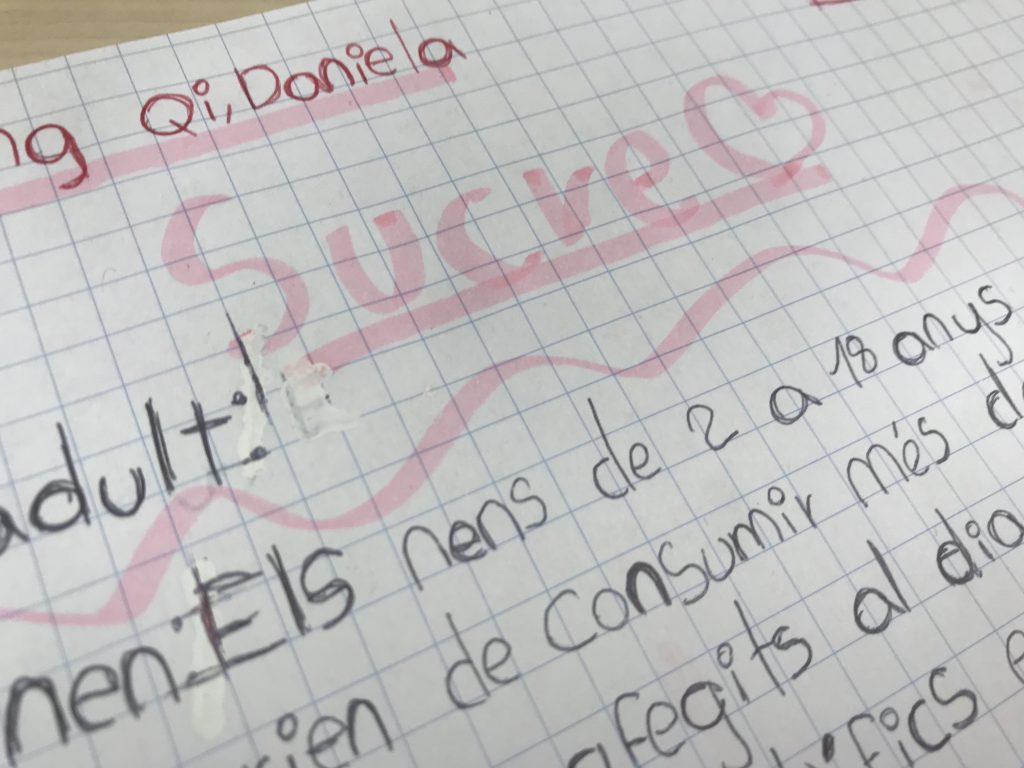 ng Qi, Daniela
Sucre
adult!
nen. Els nens de 2 a 18 anys
rien de consumir més d
afegits al dia
ífics e